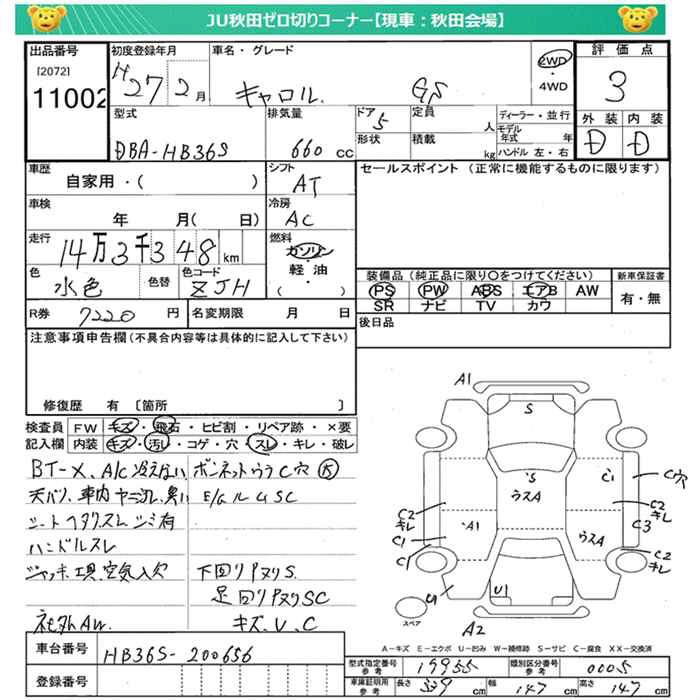 JU秋田ゼロ切りコーナー【現車：秋田会場】
出品番号 初度登録年月 車名・グレード 評価点
[2072] H27 2月 キャロル GS 2WD・4WD 3
11002
型式 排気量 ドア 定員 ディーラー・並行 外装 内装
DBA-HB36S 660cc 5 人 モデル年式 年 D D
形状 積載 kg ハンドル 左・右
車歴 シフト セールスポイント (正常に機能するものに限ります)
自家用・( ) AT
車検 冷房
年 月( 日) AC
走行 燃料
14万3千348km ガソリン・軽油 ( )
色 色替 色コード 装備品 (純正品に限り〇をつけてください) 新車保証書
水色 ZJH PS PW ABS エアB AW 有・無
SR ナビ TV カワ
R券 7220円 名変期限 月 日 後日品
注意事項申告欄(不具合内容等は具体的に記入して下さい)
修復歴 有 〔箇所
検査員 FW キズ・飛石・ヒビ割・リペア跡・×要
記入欄 内装 キズ・汚し・コゲ・穴・スレ・キレ・破レ
BT-X、A/C冷えない ボンネットウラC穴
天バリ、車内ヤニ汚レ、臭い E/gルームSC
シートヘタリスレシミ有
ハンドルスレ
ジャッキ、工具、空気入欠 下回りPヌリS
足回りPヌリSC
社外AW キズ、U、C
車台番号 HB36S-200656
登録番号
A1
S
S
ウスA
C1
C穴
C2
キレ
C2
キレ
A1
C3
C1
C1
ウスA
C2
キレ
U
U1
スペア
A2
A－キズ E－エクボ U－凹み W－補修跡 S－サビ C－腐食 XX－交換済
型式指定番号 参考 17955 類別区分番号 参考 0005
車庫証明用 参考 長さ 339cm 幅 147cm 高さ 147cm